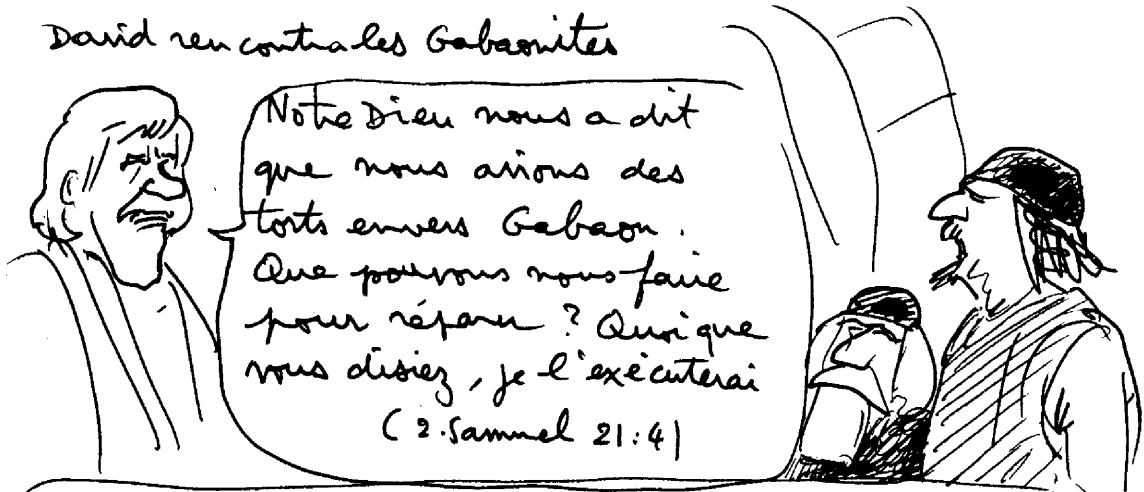 David rencontra les Gabaonites
Notre Dieu nous a dit
que nous avions des
torts envers Gabaon.
Que pouvons nous faire
pour réparer ? Quoi que
vous disiez, je l'exécuterai
(2.Samuel 21:4)